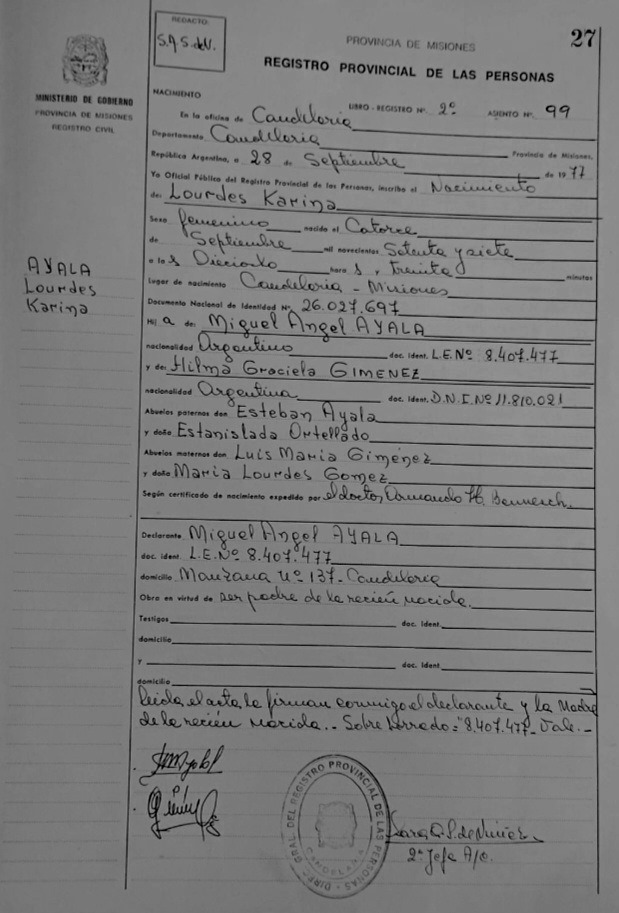 REDACTO:
S.A.S. de N.
PROVINCIA DE MISIONES
27
REGISTRO PROVINCIAL DE LAS PERSONAS
MINISTERIO DE GOBIERNO
PROVINCIA DE MISIONES
REGISTRO CIVIL
NACIMIENTO
LIBRO - REGISTRO Nº. 2º ASIENTO Nº. 99
En la oficina de Candelaria
Departamento Candelaria Provincia de Misiones,
República Argentina, a 28 de Septiembre de 1977
Yo Oficial Público del Registro Provincial de las Personas, inscribo el Nacimiento
de: Lourdes Karina
Sexo femenino nacido el Catorce
de Septiembre mil novecientos Setenta y siete
a las Dieciocho horas y treinta minutos
lugar de nacimiento Candelaria - Misiones
Documento Nacional de Identidad Nº 26.027.697
AYALA
Lourdes
Karina
Hija de: Miguel Angel AYALA
nacionalidad Argentino doc. ident. L.E.Nº 8.407.477
y de: Hilma Graciela GIMENEZ
nacionalidad Argentina doc. ident. D.N.I.Nº 11.810.021
Abuelos paternos don Esteban Ayala
y doña Estanislada Ortellado
Abuelos maternos don Luis Maria Gimenez
y doña Maria Lourdes Gomez
Según certificado de nacimiento expedido por el doctor Armando H.
Declarante Miguel Angel AYALA
doc. ident. L.E.Nº 8.407.477
domicilio Manzana nº 137- Candelaria
Obra en virtud de ser padre de la recién nacida.
Testigos doc. ident.
domicilio
y doc. ident.
domicilio
leida el acta la firman conmigo el declarante y la Madre
de la recién nacida.- Sobre borrado="8.407.477- Vale.-
DIRE. GRAL. DEL REGISTRO PROVINCIAL DE LAS PERSONAS
CANDELARIA
Sara A. S. de Nuñez
2ª Jefe A/c.